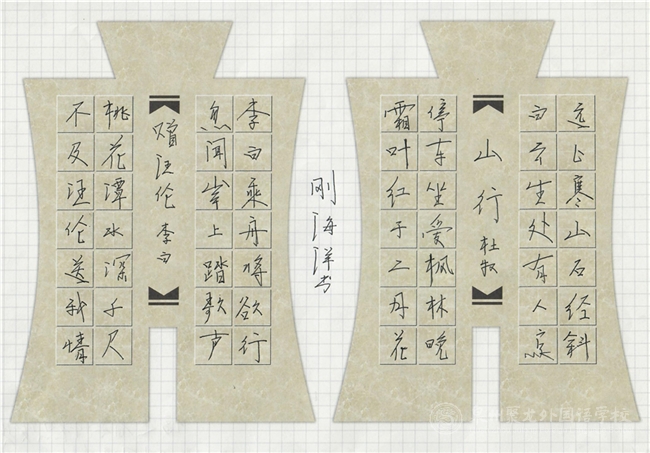 远上寒山石经斜
白云生处有人家
山行 杜牧
停车坐爱枫林晚
霜叶红于二月花
刚海洋书
李白乘舟将欲行
忽闻岸上踏歌声
赠汪伦 李白
桃花潭水深千尺
不及汪伦送我情
泉州聚龙外国语学校